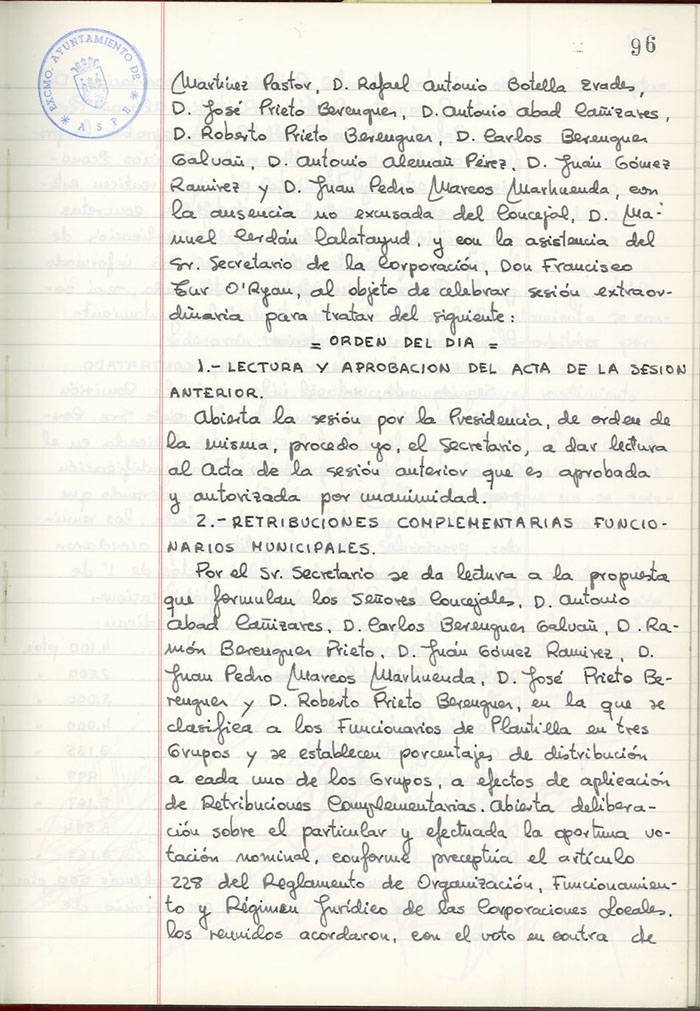 96
EXCMO. AYUNTAMIENTO DE
* ASPE *
Martínez Pastor, D. Rafael Antonio Botella Erades,
D. José Prieto Berenguer, D. Antonio Abad Cañizares,
D. Roberto Prieto Berenguer, D. Carlos Berenguer
Galvañ, D. Antonio Alemañ Pérez, D. Juán Gómez
Ramirez y D. Juan Pedro Marcos Marhuenda, con
la ausencia no excusada del Concejal, D. Ma-
nuel Cerdán Calatayud, y con la asistencia del
Sr. Secretario de la Corporación, Don Francisco
Tur O'Ryan, al objeto de celebrar sesión extraor-
dinaria para tratar del siguiente:
= ORDEN DEL DIA =
1.- LECTURA Y APROBACION DEL ACTA DE LA SESION
ANTERIOR.
Abierta la sesión por la Presidencia, de orden de
la misma, procedo yo, el Secretario, a dar lectura
al Acta de la sesión anterior que es aprobada
y autorizada por unanimidad.
2.- RETRIBUCIONES COMPLEMENTARIAS FUNCIO-
NARIOS MUNICIPALES.
Por el Sr. Secretario se da lectura a la propuesta
que formulan los Señores Concejales, D. Antonio
Abad Cañizares, D. Carlos Berenguer Galvañ, D. Ra-
món Berenguer Prieto, D. Juán Gómez Ramirez, D.
Juan Pedro Marcos Marhuenda, D. José Prieto Be-
renguer y D. Roberto Prieto Berenguer, en la que se
clasifica a los Funcionarios de Plantilla en tres
Grupos y se establecen porcentajes de distribución
a cada uno de los Grupos, a efectos de aplicación
de Retribuciones Complementarias. Abierta delibera-
ción sobre el particular y efectuada la oportuna vo-
tación nominal, conforme preceptúa el artículo
228 del Reglamento de Organización, Funcionamien-
to y Régimen Jurídico de las Corporaciones Locales,
los reunidos acordaron, con el voto en contra de